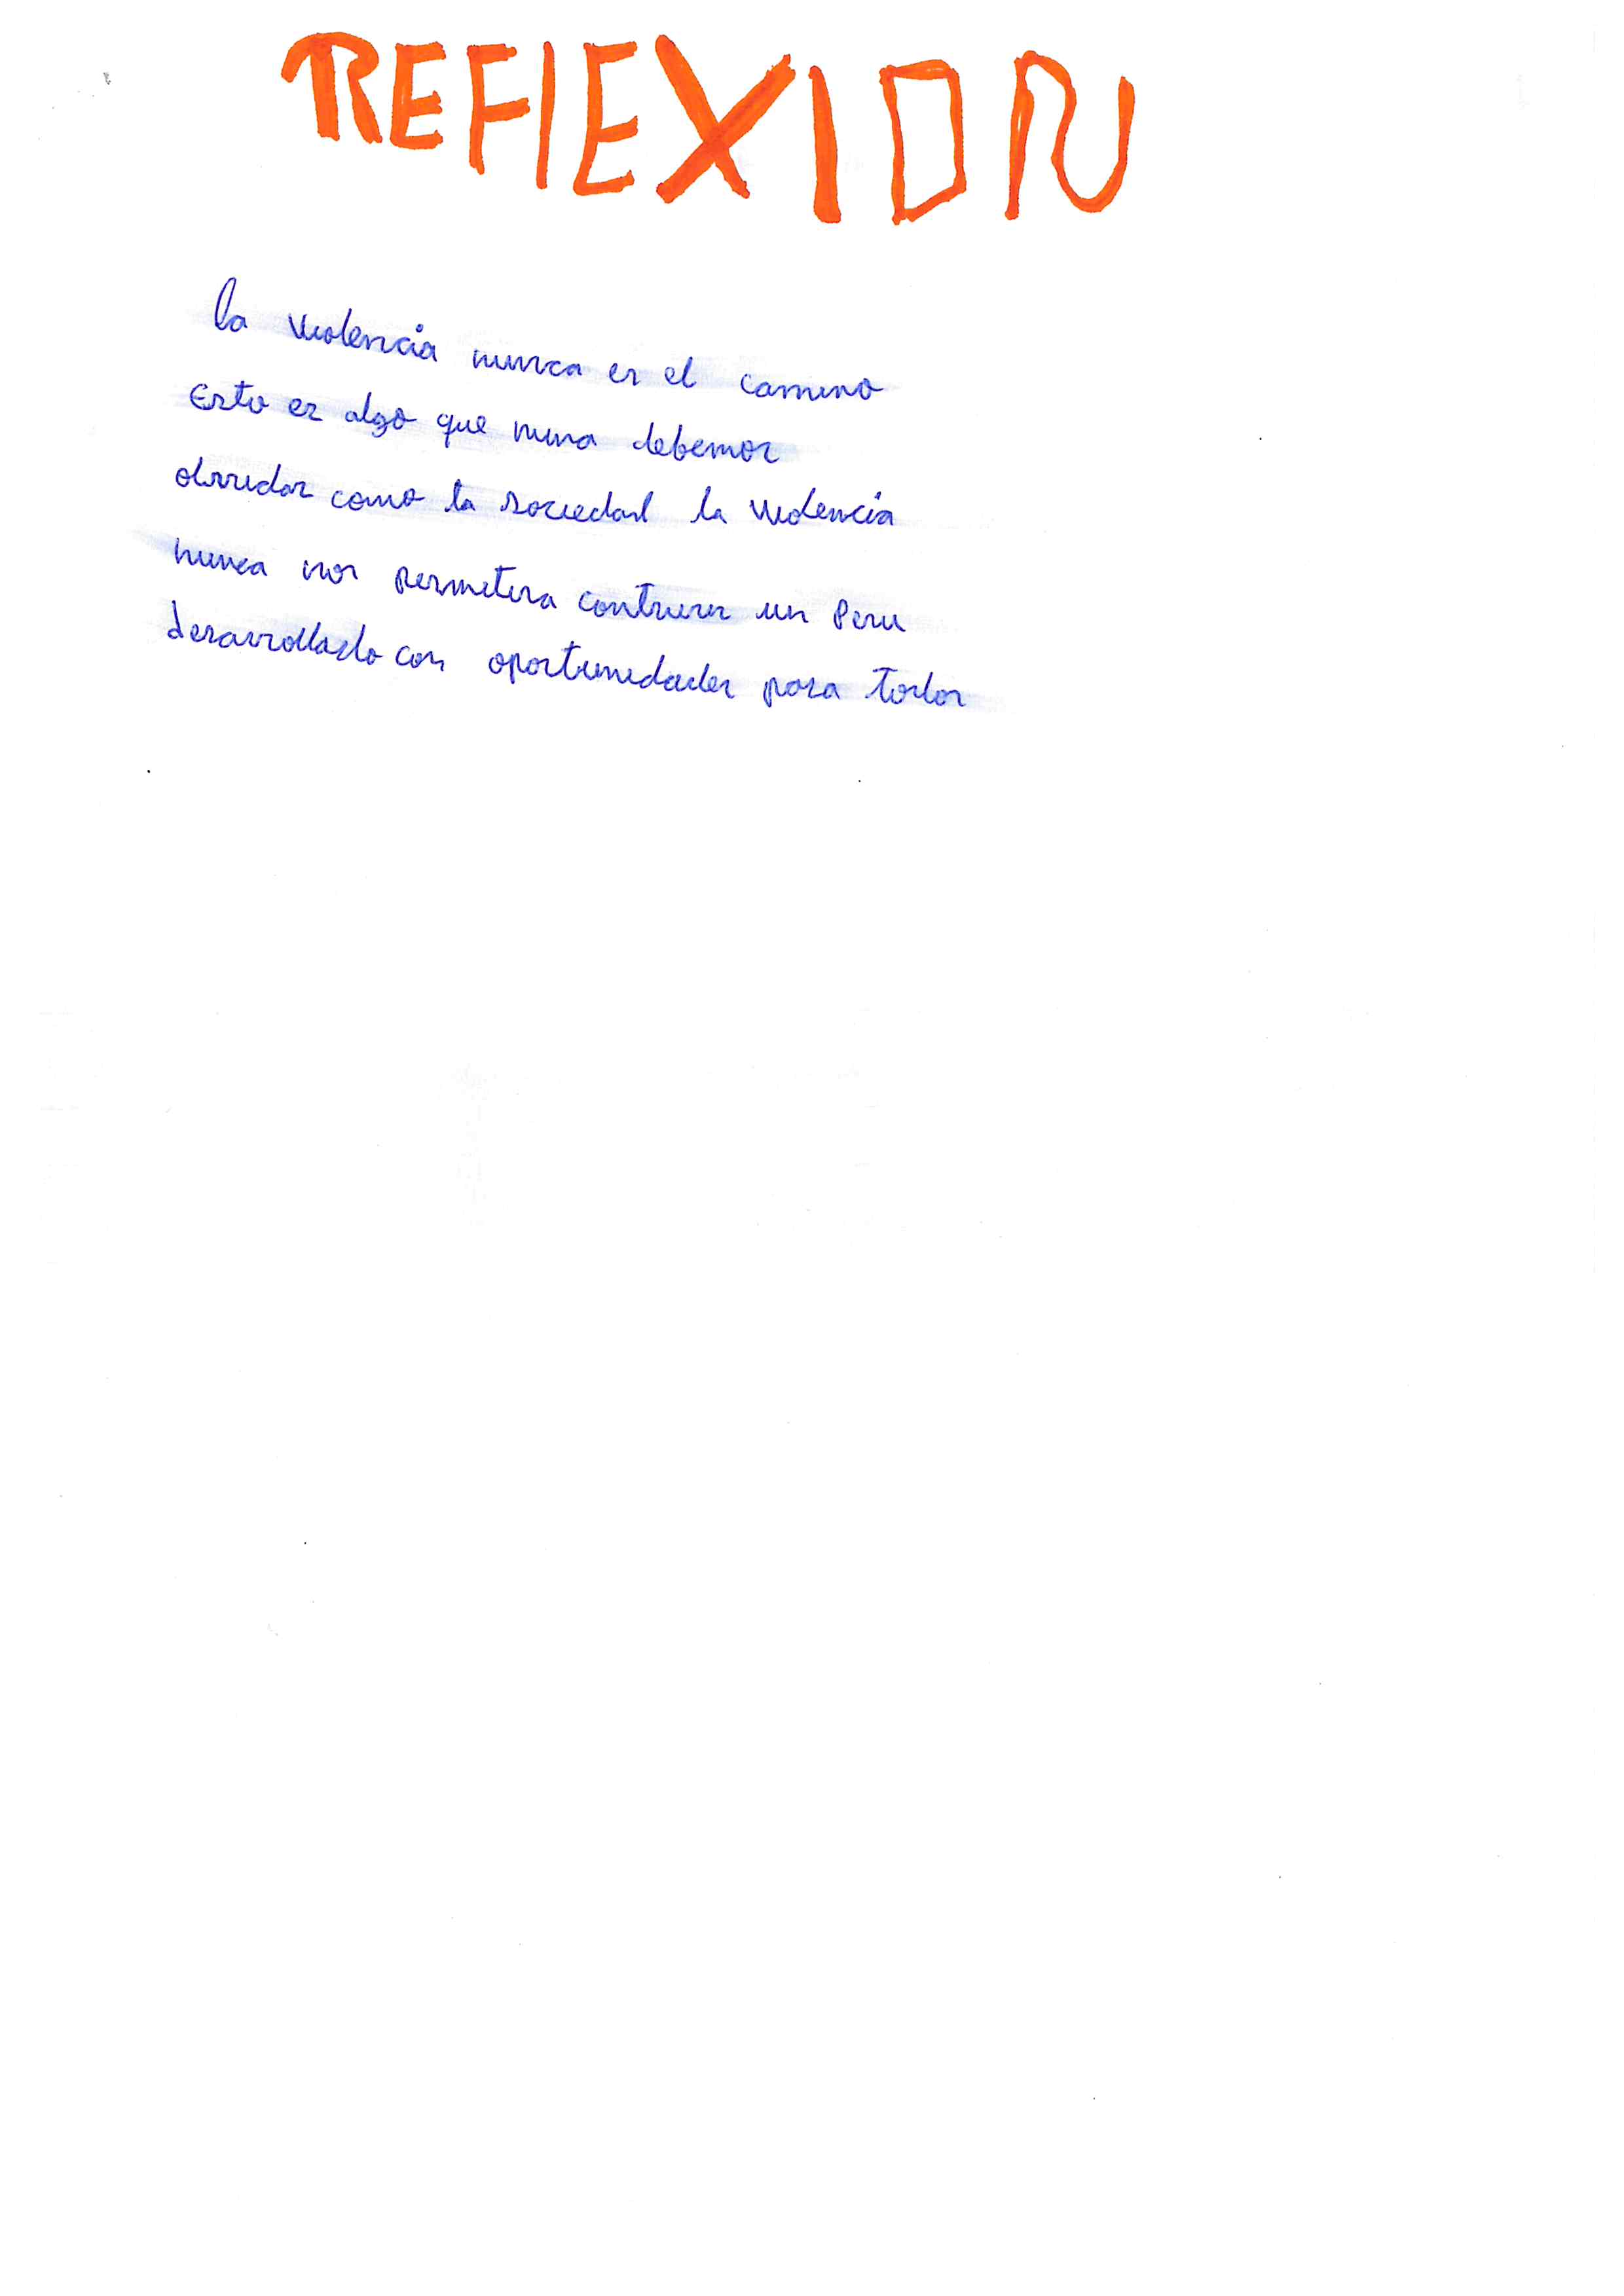 REFLEXION
la violencia nunca es el camino
Esto es algo que nuna debemos
olvidar como la sociedad la violencia
nunca nos permitira contruir un Peru
desarrollado con oportunidades para todos